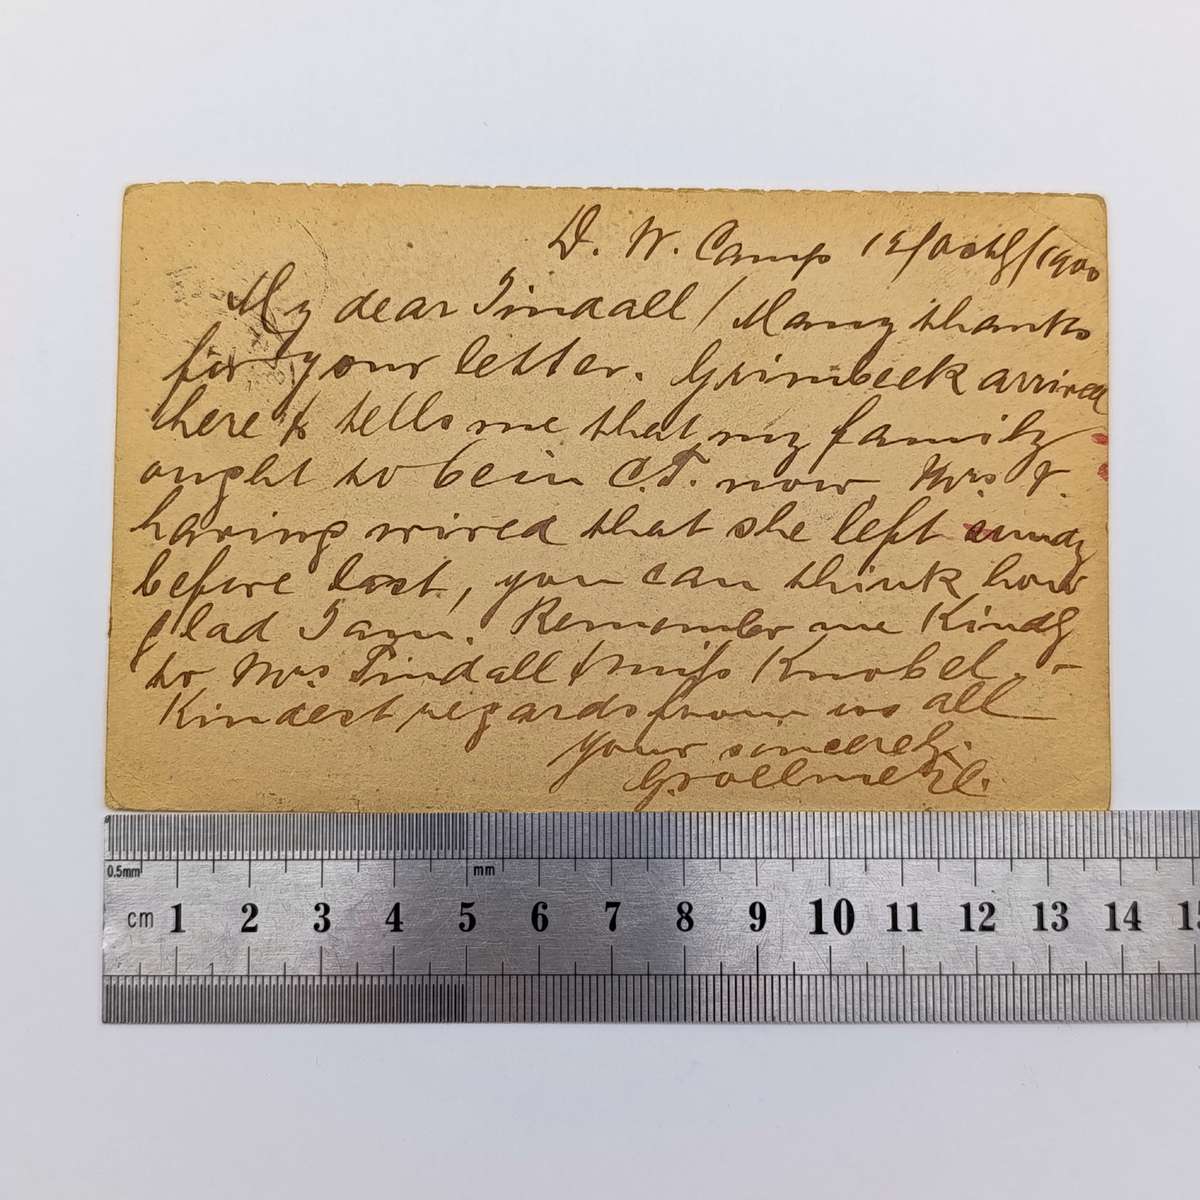 D. W. Camp 12/Octb/1900
My dear Tindall / Many thanks
for your letter. Grimbeek arrived
here & tells me that my family
ought to be in C.T. now Mrs J.
having wired that she left sunday
before last, you can think how
glad I am. Remember me Kindly
to Mrs Tindall & Miss Knobel. -
Kindest regards from us all
your sincerely.
0.5mm mm
cm 1 2 3 4 5 6 7 8 9 10 11 12 13 14 15